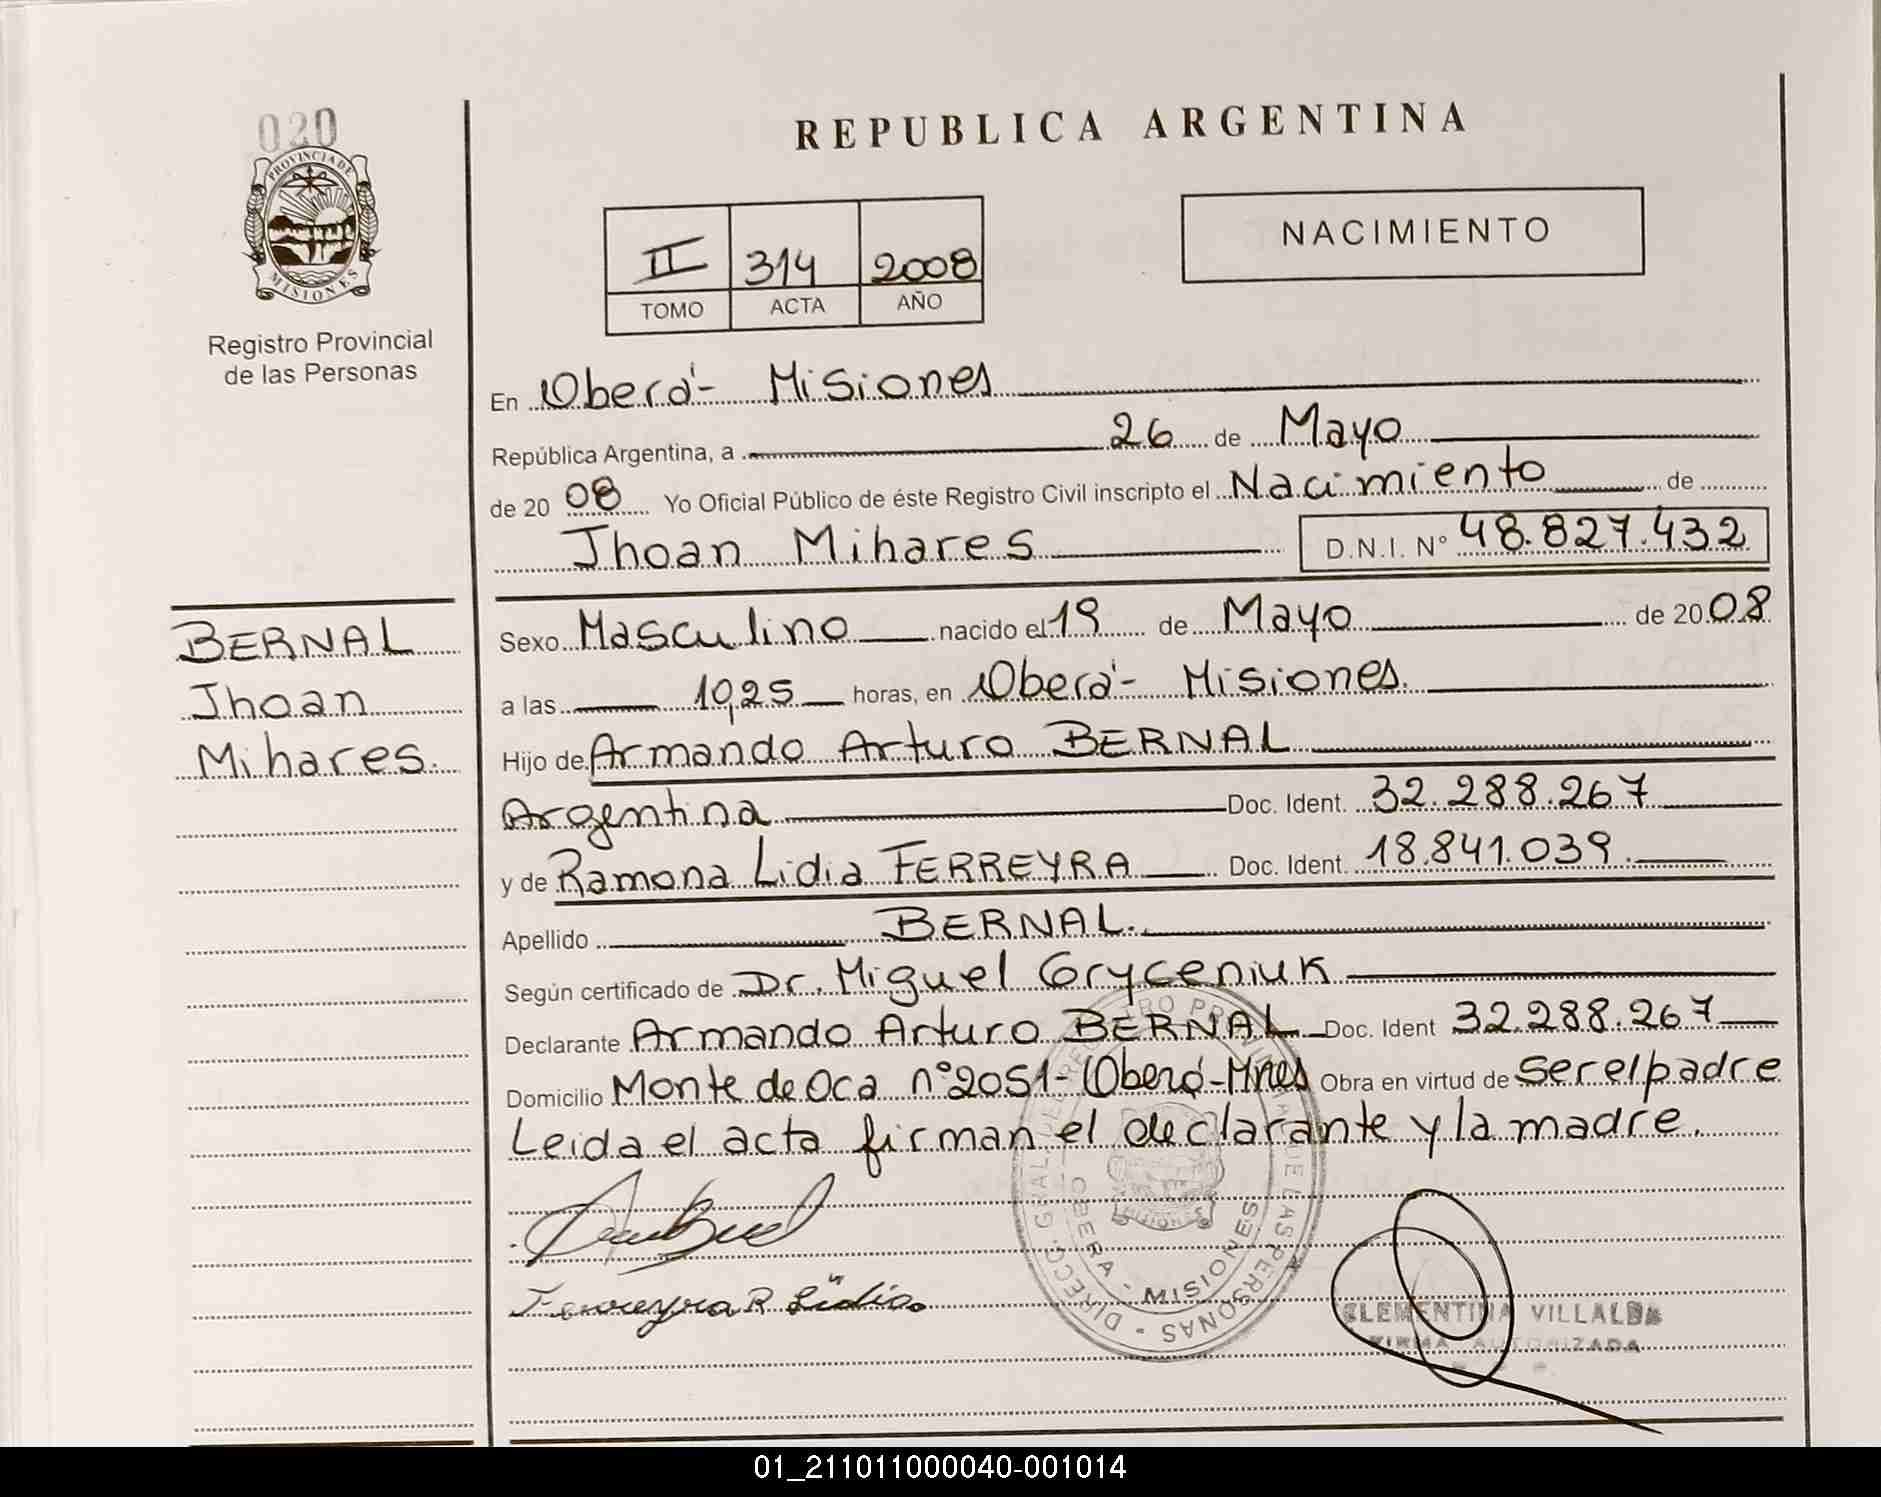 020
PROVINCIA DE
MISIONES
Registro Provincial
de las Personas
REPUBLICA ARGENTINA
II 314 2008
TOMO ACTA AÑO
NACIMIENTO
En Oberá - Misiones
República Argentina, a 26 de Mayo
de 20 08 Yo Oficial Público de éste Registro Civil inscripto el Nacimiento de
Jhoan Mihares D.N.I. N° 48.827.432
BERNAL
Jhoan
Mihares.
Sexo Masculino nacido el 19 de Mayo de 2008
a las 10,25 horas, en Oberá - Misiones.
Hijo de Armando Arturo BERNAL
Argentina Doc. Ident. 32.288.267
y de Ramona Lidia FERREYRA Doc. Ident. 18.841.039.
Apellido BERNAL.
Según certificado de Dr. Miguel Gryceniuk
Declarante Armando Arturo BERNAL Doc. Ident 32.288.267
Domicilio Monte de Oca n° 2051 - Oberá - Mnes Obra en virtud de ser el padre
Leida el acta firman el declarante y la madre.
Ferreyra R Lidia
DIRECC. GRAL. DE LAS PERSONAS
OBERA - MISIONES
CLEMENTINA VILLALBA
FIRMA AUTORIZADA
01_211011000040-001014